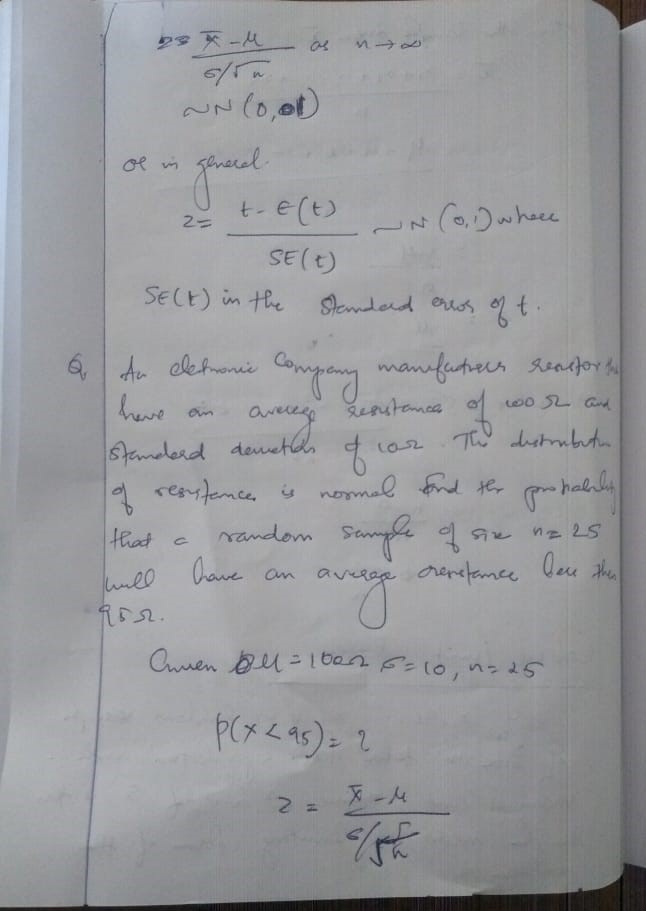 z= x̄ - μ / σ/√n as n→∞
~N(0,1)
or in general.
z= t - E(t) / SE(t) ~N (0,1) where
SE(t) in the standard error of t.
Q An eletronic Company manufactures resistor
have an average resistance of 100 Ω and
standard deviation of 10Ω. The distribution
of resistance is normal find the probability
that a random sample of size n= 25
will have an average resistance less then
95Ω.
Given μ=100Ω σ=10, n=25
P(x<95)= ?
z = x̄ - μ / σ/√n